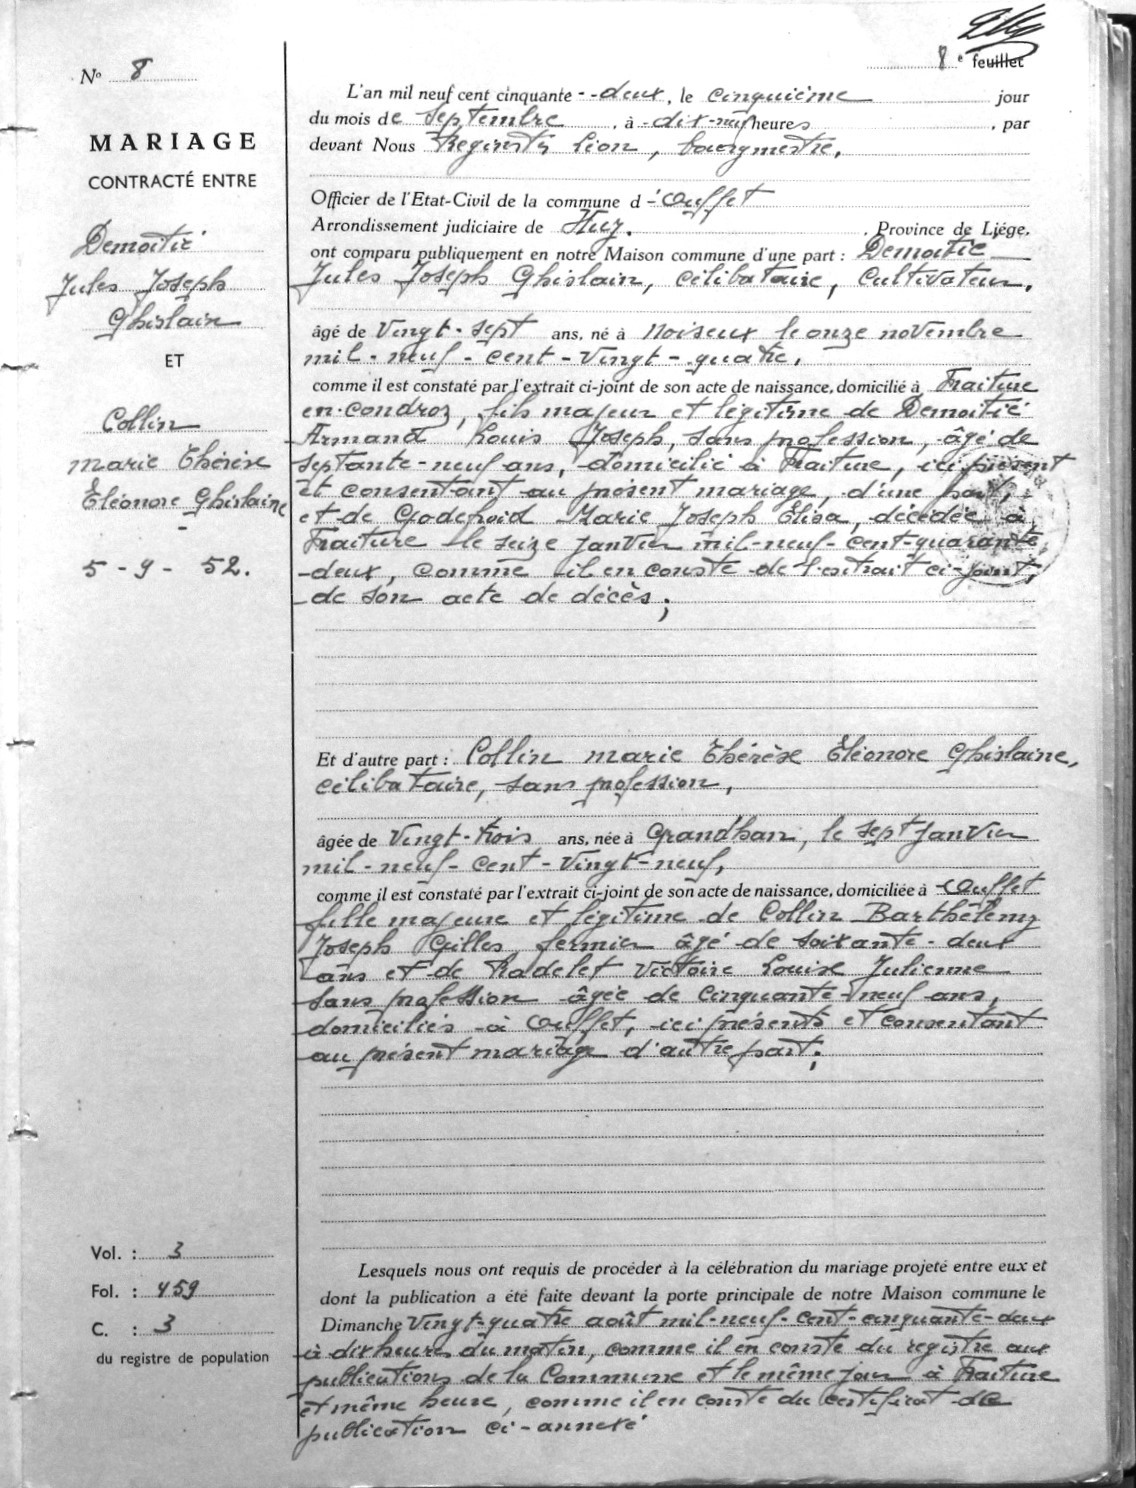 8e feuillet
No 8
MARIAGE
CONTRACTÉ ENTRE
Demoitié
Jules Joseph
Ghislain
ET
Collin
Marie Thérèse
Eléonore Ghislaine
5-9-52.
L'an mil neuf cent cinquante--deux, le cinquième jour
du mois de septembre, à dix-neuf heures, par
devant Nous Lion, bourgmestre,
Officier de l'Etat-Civil de la commune d'Ouffet
Arrondissement judiciaire de Huy. Province de Liége,
ont comparu publiquement en notre Maison commune d'une part : Demoitié
Jules Joseph Ghislain, célibataire, Cultivateur,
âgé de Vingt-sept ans, né à Noiseux le onze novembre
mil-neuf-cent-vingt-quatre,
comme il est constaté par l'extrait ci-joint de son acte de naissance, domicilié à Fraiture
en-Condroz, fils majeur et légitime de Demoitié
Armand Louis Joseph, sans profession, âgé de
septante-neuf ans, domicilié à Fraiture, ici présent
et consentant au présent mariage, d'une part,
et de Godefroid Marie Joseph Elisa, décédée à
Fraiture le seize janvier mil-neuf-cent-quarante
-deux, comme il en conste de l'extrait ci-joint,
de son acte de décès;
Et d'autre part : Collin Marie Thérèse Eléonore Ghislaine,
célibataire, sans profession,
âgée de Vingt-trois ans, née à Grandhan, le sept janvier
mil-neuf-cent-vingt-neuf,
comme il est constaté par l'extrait ci-joint de son acte de naissance, domiciliée à Ouffet
fille majeure et légitime de Collin Barthélemy
Joseph Gilles, fermier âgé de soixante-deux
ans et de Radelet Victoire Louise Julienne
sans profession âgée de cinquante-neuf ans,
domiciliés à Ouffet, ici présents et consentant
au présent mariage d'autre part;
Vol. : 3
Fol. : 459
C. : 3
du registre de population
Lesquels nous ont requis de procéder à la célébration du mariage projeté entre eux et
dont la publication a été faite devant la porte principale de notre Maison commune le
Dimanche Vingt-quatre août mil-neuf-cent-cinquante-deux
à dix heures du matin, comme il en conste du registre aux
publications de la Commune et le même jour à Fraiture
et même heure, comme il en conste du certificat de
publication ci-annexé